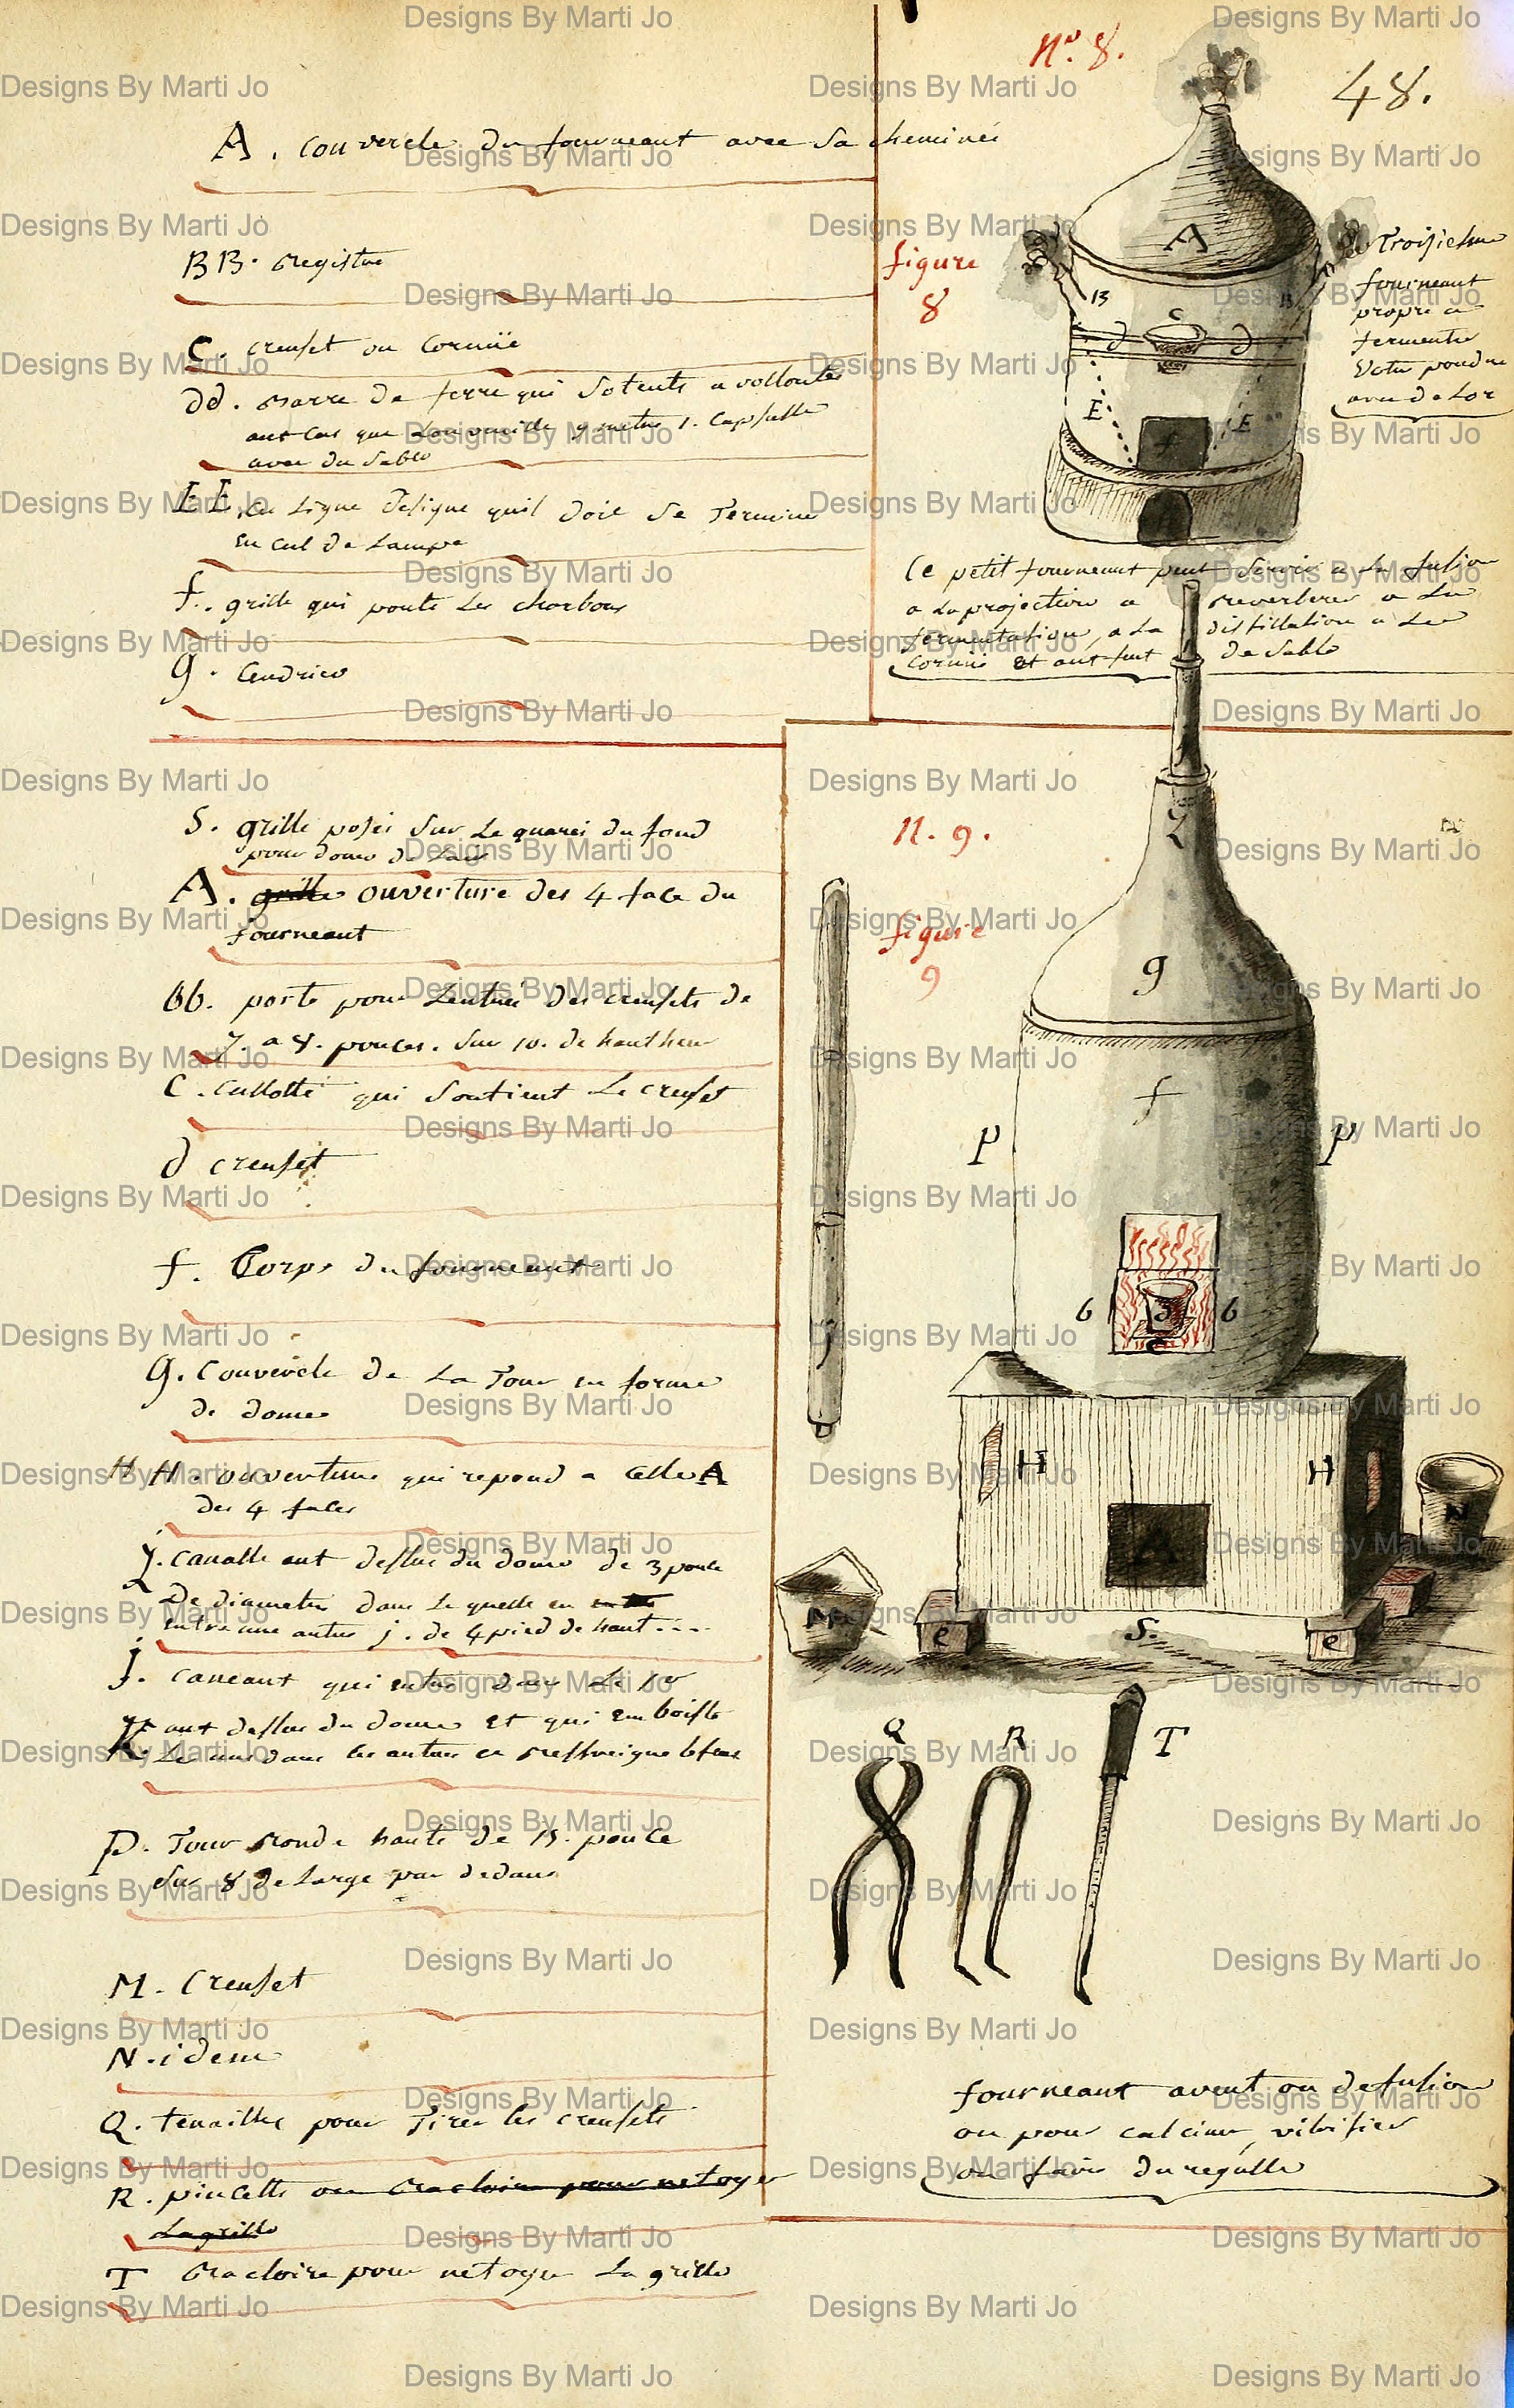 48.
A. Couvercle du fourneaut avec sa cheminée
BB. registre
C. creuset ou Cornüe
dd. Barre de ferre qui sotente a vollonté
aut cas que Lon veuille y mettre 1. Capsulle
avec du sable
EE. La Ligne désigne quil doit se Terminer
En cul de Lampe
f. grille qui porte Les charbons
g. Cendrier
N°. 8.
figure
8
A
B
B
C
d
d
E
E
f
Troisiesme
fourneaut
propre a
fermenter
Votre poudre
avec de Lor
Ce petit fourneaut peut Servir a La fusion
a La projection a reverberer a La
fermentation, a La distillation a La
Cornüe Et aut feut de Sable
S. grille posée Sur Le quarei du fond
pour donner de Lair
A. grille ouverture des 4 face du
fourneaut
bb. porte pour Lentrée des creusets de
7. a 8. pouces. Sur 10. de hautheur
C. Cullotte qui Soutient Le creuset
d creuset
f. Corps du fourneaut
g. Couvercle de La Tour en forme
de dome
HH. ouverture qui repond a Celle A
des 4 faces
Z. canalle aut dessus du dome de 3 pouce
De diametre dans Le quelle en
Entre une autre j. de 4 pied de haut....
j. caneaut qui entre dans Le
K. aut dessus du dome Et qui Emboiste
Les uns dans les autres
P. Tour Ronde haute de 15. pouce
Sur 8 de Large par dedans
M. Creuset
N. idem
Q. tenailles pour Tirer les creusets
R. pincette ou Racloire pour netoyer
La grille
T Racloire pour netoyer La grille
N. 9.
figure
9
Z
g
f
P
P
b
b
C
j
H
H
A
M
N
e
e
S.
Q
R
T
fourneaut a vent ou de fusion
ou pour calciner, vitrifier
ou faire du regulle
Designs By Marti Jo